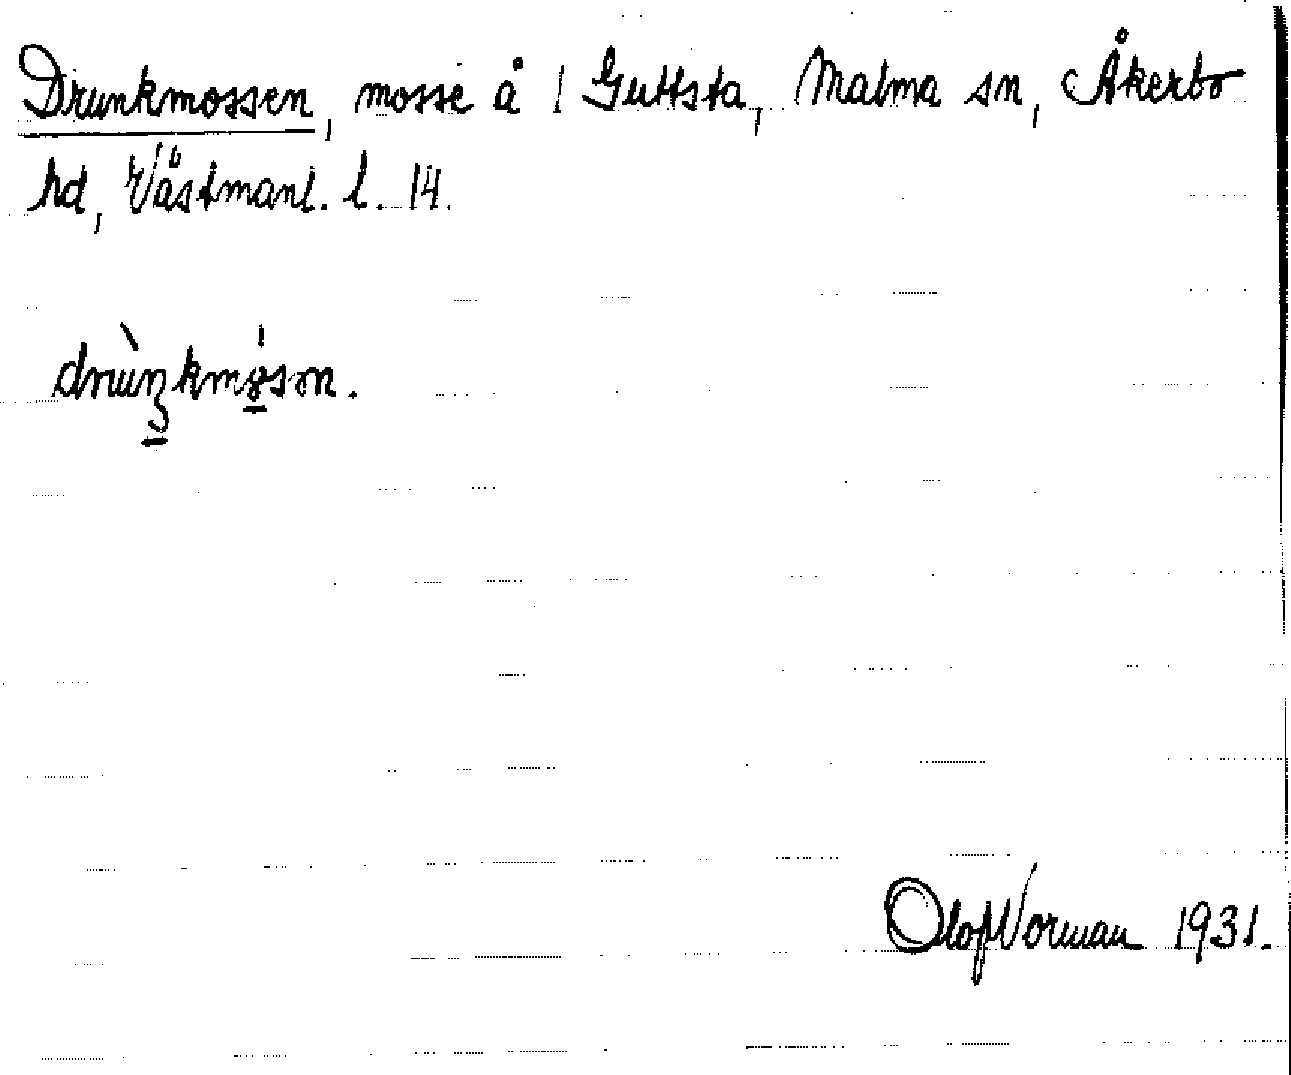 Drunkmossen, mosse å 1 Guttsta, Malma sn, Åkerbo
hd, Västmanl. l. 14.
Olof Norman 1931.